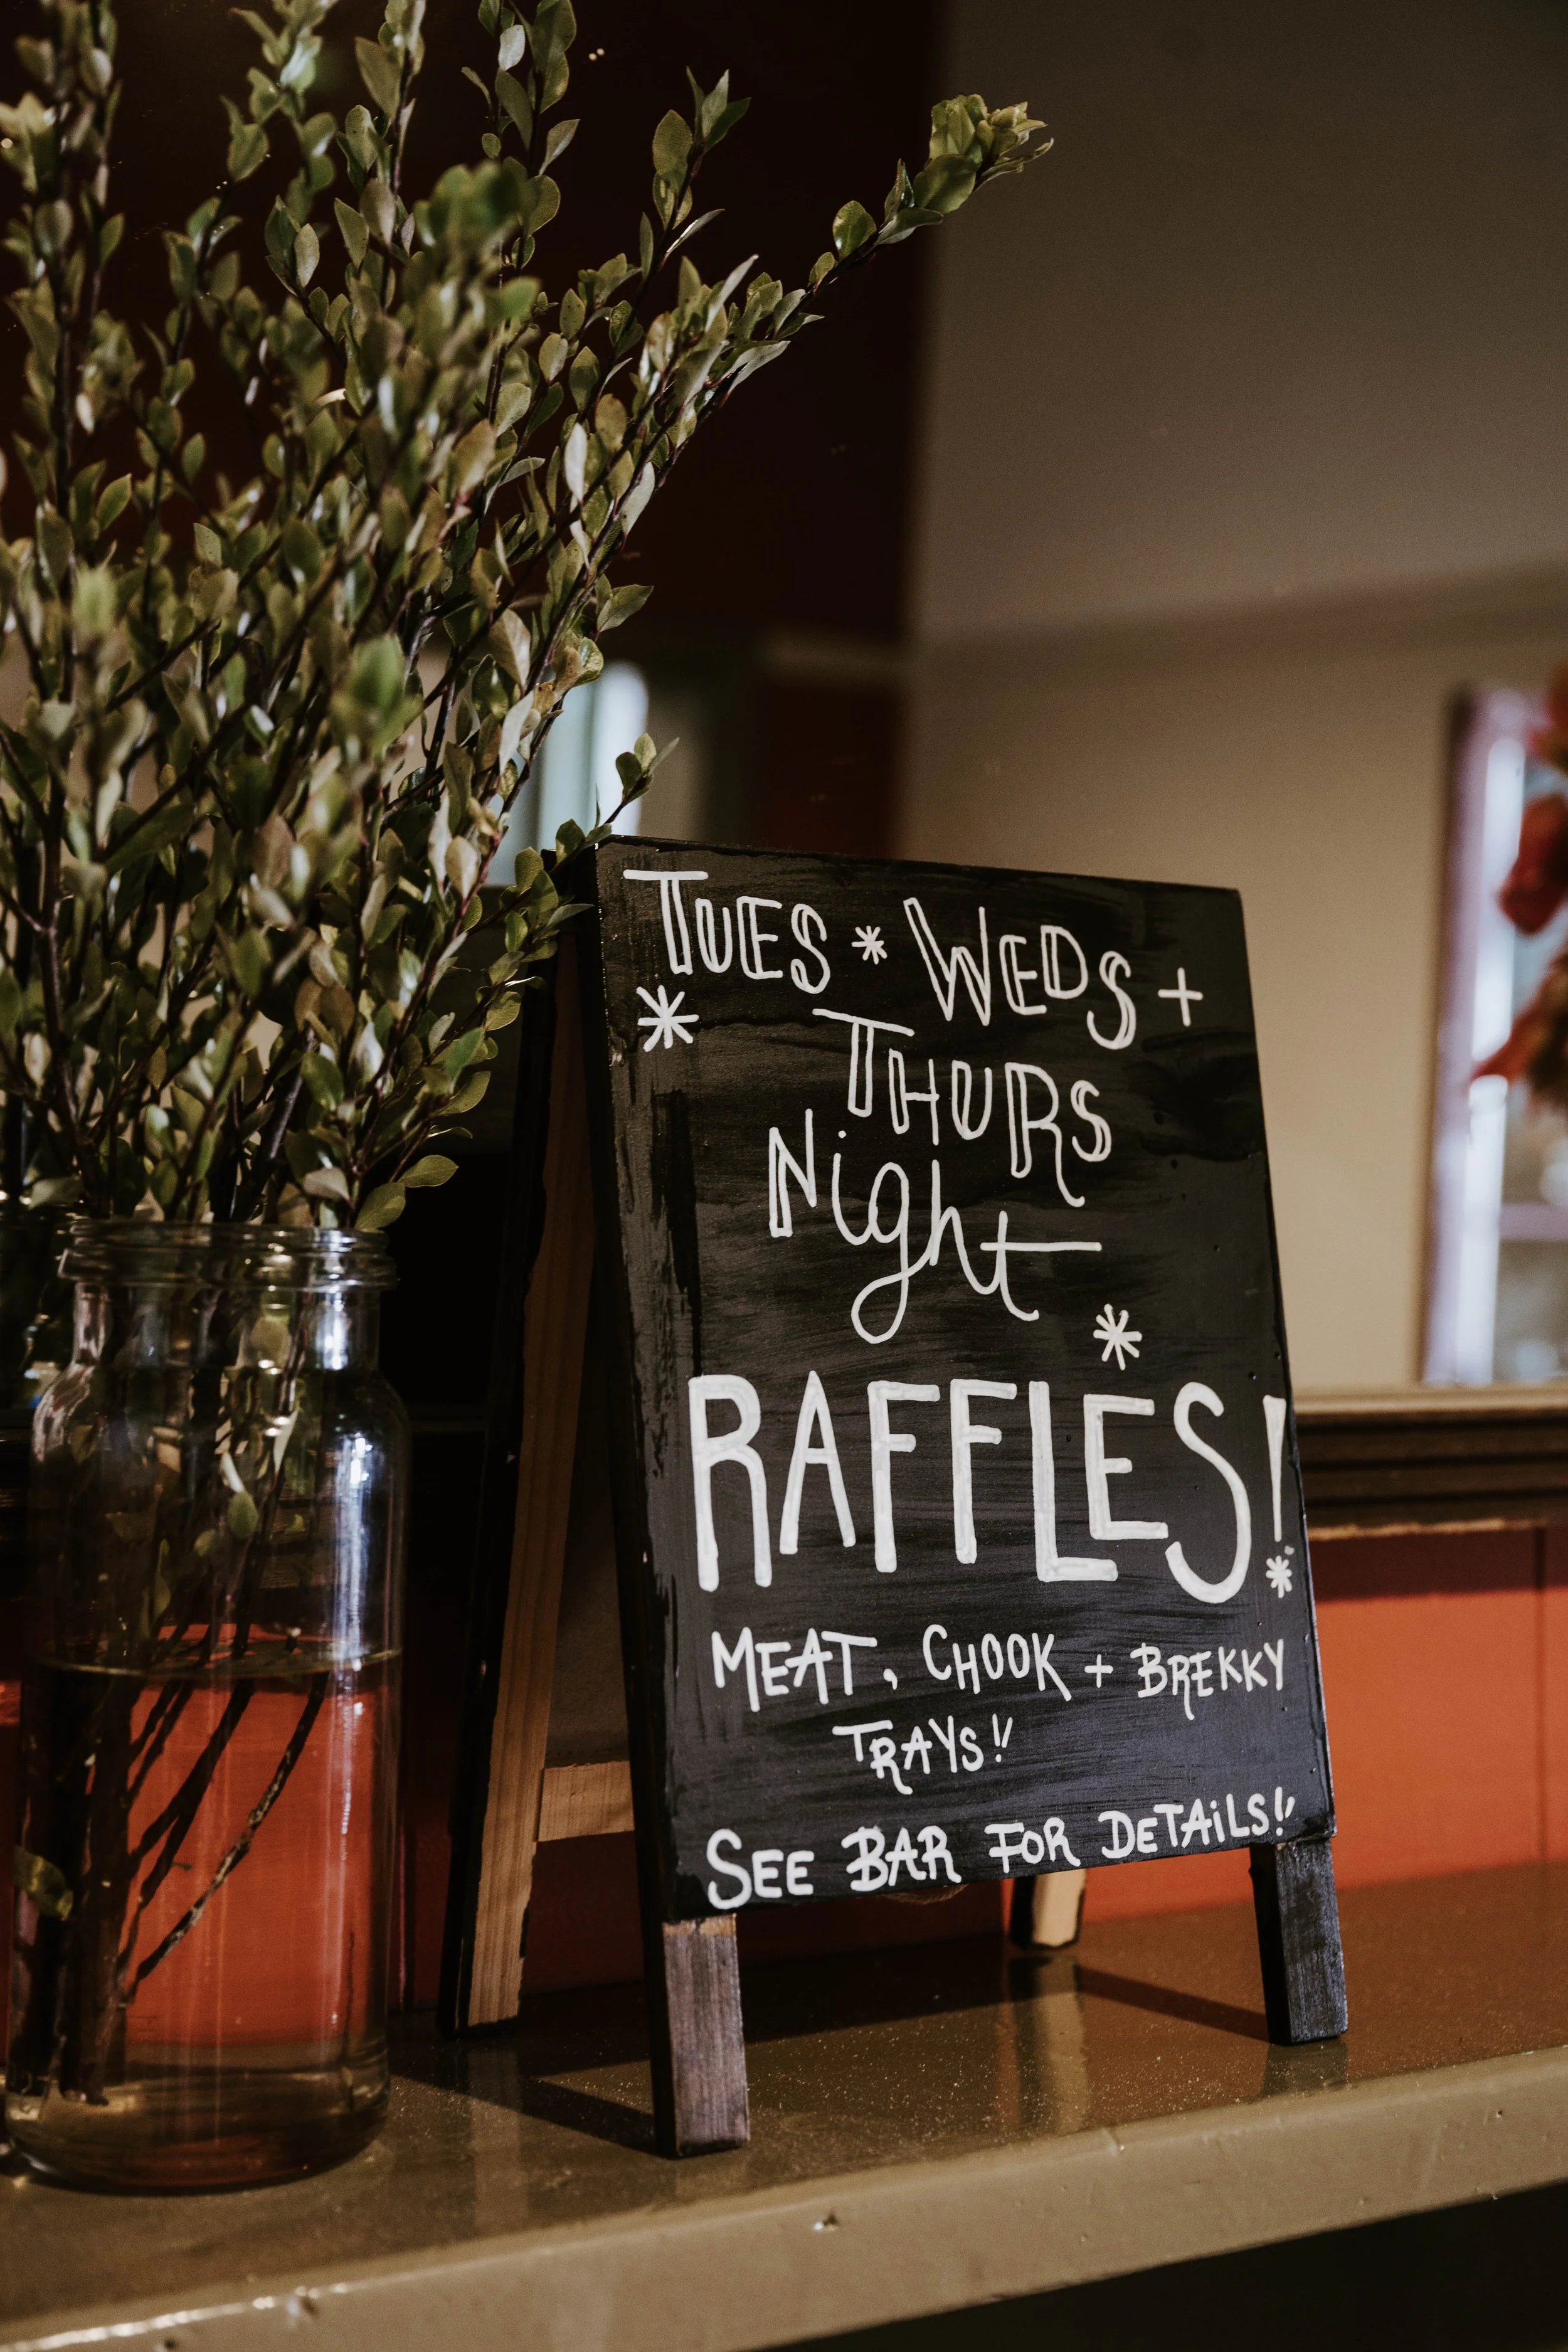 TUES * WEDS +
* THURS
Night
*
RAFFLES!
MEAT, CHOOK + BREKKY
TRAYS!!
SEE BAR FOR DETAiLS!!